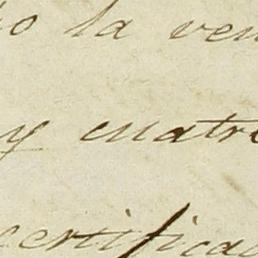 o la ven
y cuatro
certifica